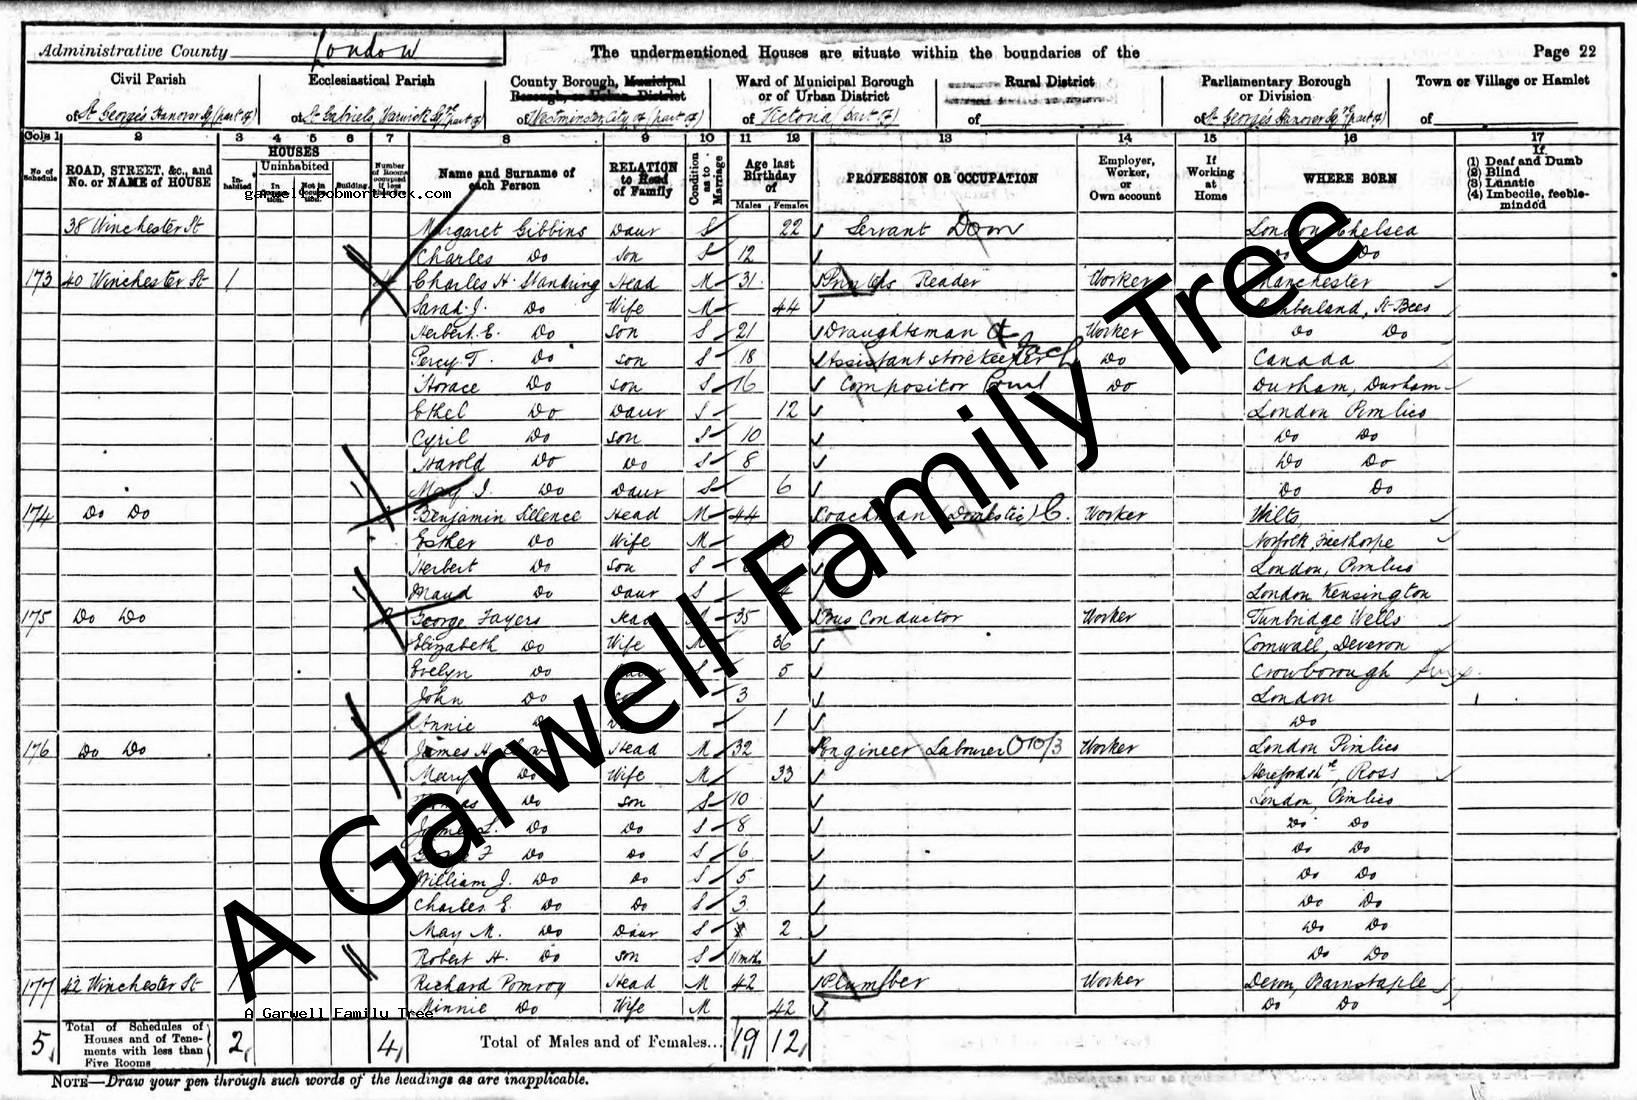 Administrative County London
The undermentioned Houses are situate within the boundaries of the
Page 22
Civil Parish
of St George's Hanover Sq (part of)
Ecclesiastical Parish
of St Gabriel's, Warwick Sqre (part of)
County Borough, Municipal Borough, or Urban District
of Westminster City of (part of)
Ward of Municipal Borough or of Urban District
of Victoria (part of)
Rural District
of
Parliamentary Borough or Division
of St George's Hanover Sqre (part of)
Town or Village or Hamlet
of
Cols 1 2 3 4 5 6 7 8 9 10 11 12 13 14 15 16 17
No. of Schedule
ROAD, STREET, &c., and No. or NAME of HOUSE
HOUSES
Inhabited
Uninhabited
In Occupation.
Not in Occupation.
Building.
Number of Rooms occupied if less than five
Name and Surname of each Person
RELATION to Head of Family
Condition as to Marriage
Age last Birthday of
Males Females
PROFESSION OR OCCUPATION
Employer, Worker, or Own account
If Working at Home
WHERE BORN
If
(1) Deaf and Dumb
(2) Blind
(3) Lunatic
(4) Imbecile, feeble-minded
garwell.bobmortlock.com
38 Winchester St Margaret Gibbins Daur S 22 Servant Dom London Chelsea
Charles Do Son S 12 Do Do
173 40 Winchester St 1 4 Charles H. Standring Head M 31 Printers Reader Worker Manchester
Sarah J. Do Wife M 44 Cumberland, St Bees
Herbert E. Do Son S 21 Draughtsman Worker Do Do
Percy T. Do Son S 18 Assistant storekeeper Do Canada
Horace Do Son S 16 Compositor Do Durham, Durham
Ethel Do Daur S 12 London Pimlico
Cyril Do Son S 10 Do Do
Harold Do Do S 8 Do Do
May I. Do Daur S 6 Do Do
174 Do Do Benjamin Sillence Head M 44 Coachman (Domestic) C. Worker Wilts
Esther Do Wife M Norfolk, Freethorpe
Herbert Do Son S London, Pimlico
Maud Do Daur S London Kensington
175 Do Do George Fayers Head M 35 Bus Conductor Worker Tunbridge Wells
Elizabeth Do Wife M 36 Cornwall, Deveron
Evelyn Do Daur S 5 Crowborough
John Do Son 3 London
Annie Do 1 Do
176 Do Do James H. Head M 32 Engineer Labourer 010/3 Worker London Pimlico
Mary Do Wife M 33 Herefordshre, Ross
Thomas Do Son S 10 London, Pimlico
James L. Do Do S 8 Do Do
George F Do Do S 6 Do Do
William J. Do Do S 5 Do Do
Charles E. Do Do S 3 Do Do
May M. Do Daur S 2 Do Do
Robert H. Do Son S 11 mths Do Do
177 42 Winchester St 1 Richard Pomroy Head M 42 Plumber Worker Devon, Barnstaple
Minnie Do Wife M 42 Do Do
A Garwell Family Tree
5 Total of Schedules of Houses and of Tenements with less than Five Rooms 2 4 Total of Males and of Females... 19 12
NOTE—Draw your pen through such words of the headings as are inapplicable.
A Garwell Family Tree